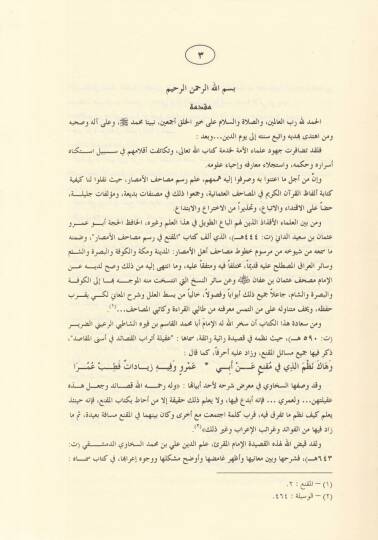 ٣
بسم الله الرحمن الرحيم
مقدمة
الحمد لله رب العالمين، والصلاة والسلام على خير الخلق أجمعين، نبينا محمد ﷺ، وعلى آله وصحبه
ومن اهتدى بهديه واتبع سنته إلى يوم الدين...وبعد :
فلقد تضافرت جهود علماء الأمة لخدمة كتاب الله تعالى، وتكاتفت أقلامهم في سبيل استكناه
أسراره وحكمه، واستجلاء معارفه وإحياء علومه.
وإنّ من أجل ما اعتنوا به وصرفوا إليه هممهم، علم رسم مصاحف الأمصار، حيث نقلوا لنا كيفية
كتابة ألفاظ القرآن الكريم في المصاحف العثمانية، وجمعوا ذلك في مصنفات بديعة، ومؤلفات جليلة،
حضاً على الاقتداء والاتباع، وتحذيراً من الاختراع والابتداع.
ومن بين العلماء الأفذاذ الذين لهم الباع الطويل في هذا العلم وغيره، الحافظ الحجة أبو عمرو
عثمان بن سعيد الداني (ت: ٤٤٤هـ)، الذي ألف كتاب "المقنع في رسم مصاحف الأمصار"، وضمنه
ما سمعه من شيوخه من مرسوم خطوط مصاحف أهل الأمصار: المدينة ومكة والكوفة والبصرة والشام
وسائر العراق المصطلح عليه قديماً، مختلفاً فيه ومتفقاً عليه، وما انتهى إليه من ذلك وصح لديه عن
الإمام مصحف عثمان بن عفان ﷺ وعن سائر النسخ التي انتسخت منه الموجه بها إلى الكوفة
والبصرة والشام، جاعلاً جميع ذلك أبواباً وفصولاً، خالياً من بسط العلل وشرح المعاني لكي يقرب
حفظه، ويخف متناوله على من التمس معرفته من طالبي القراءة وكاتبي المصاحف...(١)
ومن سعادة هذا الكتاب أن سخر الله له الإمام أبا محمد القاسم بن فيره الشاطبي الرعيني الضرير
(ت: ٥٩٠ هـ)، حيث نظمه في قصيدة رائية رائقة، سماها : "عقيلة أتراب القصائد في أسنى المقاصد"،
ذكر فيها جميع مسائل المقنع، وزاد عليه أحرفاً، كما قال :
وهاك نظم الذي في مقنع عن أبي * عمرو وفيه زيادات فطب عمرا
وقد وصفها السخاوي في معرض شرحه لأحد أبياتها : «وله رحمه الله قصائد، وجعل هذه
عقيلتهن...ولعمري ... فإنه أبدع فيها، ولا يعلم ذلك حقيقة إلا من أحاط بكتاب المقنع، فإنه حينئذ
يعلم كيف نظم ما تفرق فيه، فرب كلمة اجتمعت مع أخرى وكان بينهما في المقنع مسافة بعيدة، ثم ما
زاد فيها من الفوائد وغرائب الإعراب وغير ذلك»(٢)
ولقد قيض الله لهذه القصيدة الإمام المقرئ، علم الدين علي بن محمد السخاوي الدمشقي (ت:
٦٤٣هـ)، فشرحها وبين معانيها وأظهر غامضها وأوضح مشكلها ووجوه إعرابها، في كتاب سماه :
(١) – المقنع : ٢.
(٢) – الوسيلة : ٤٦٤.